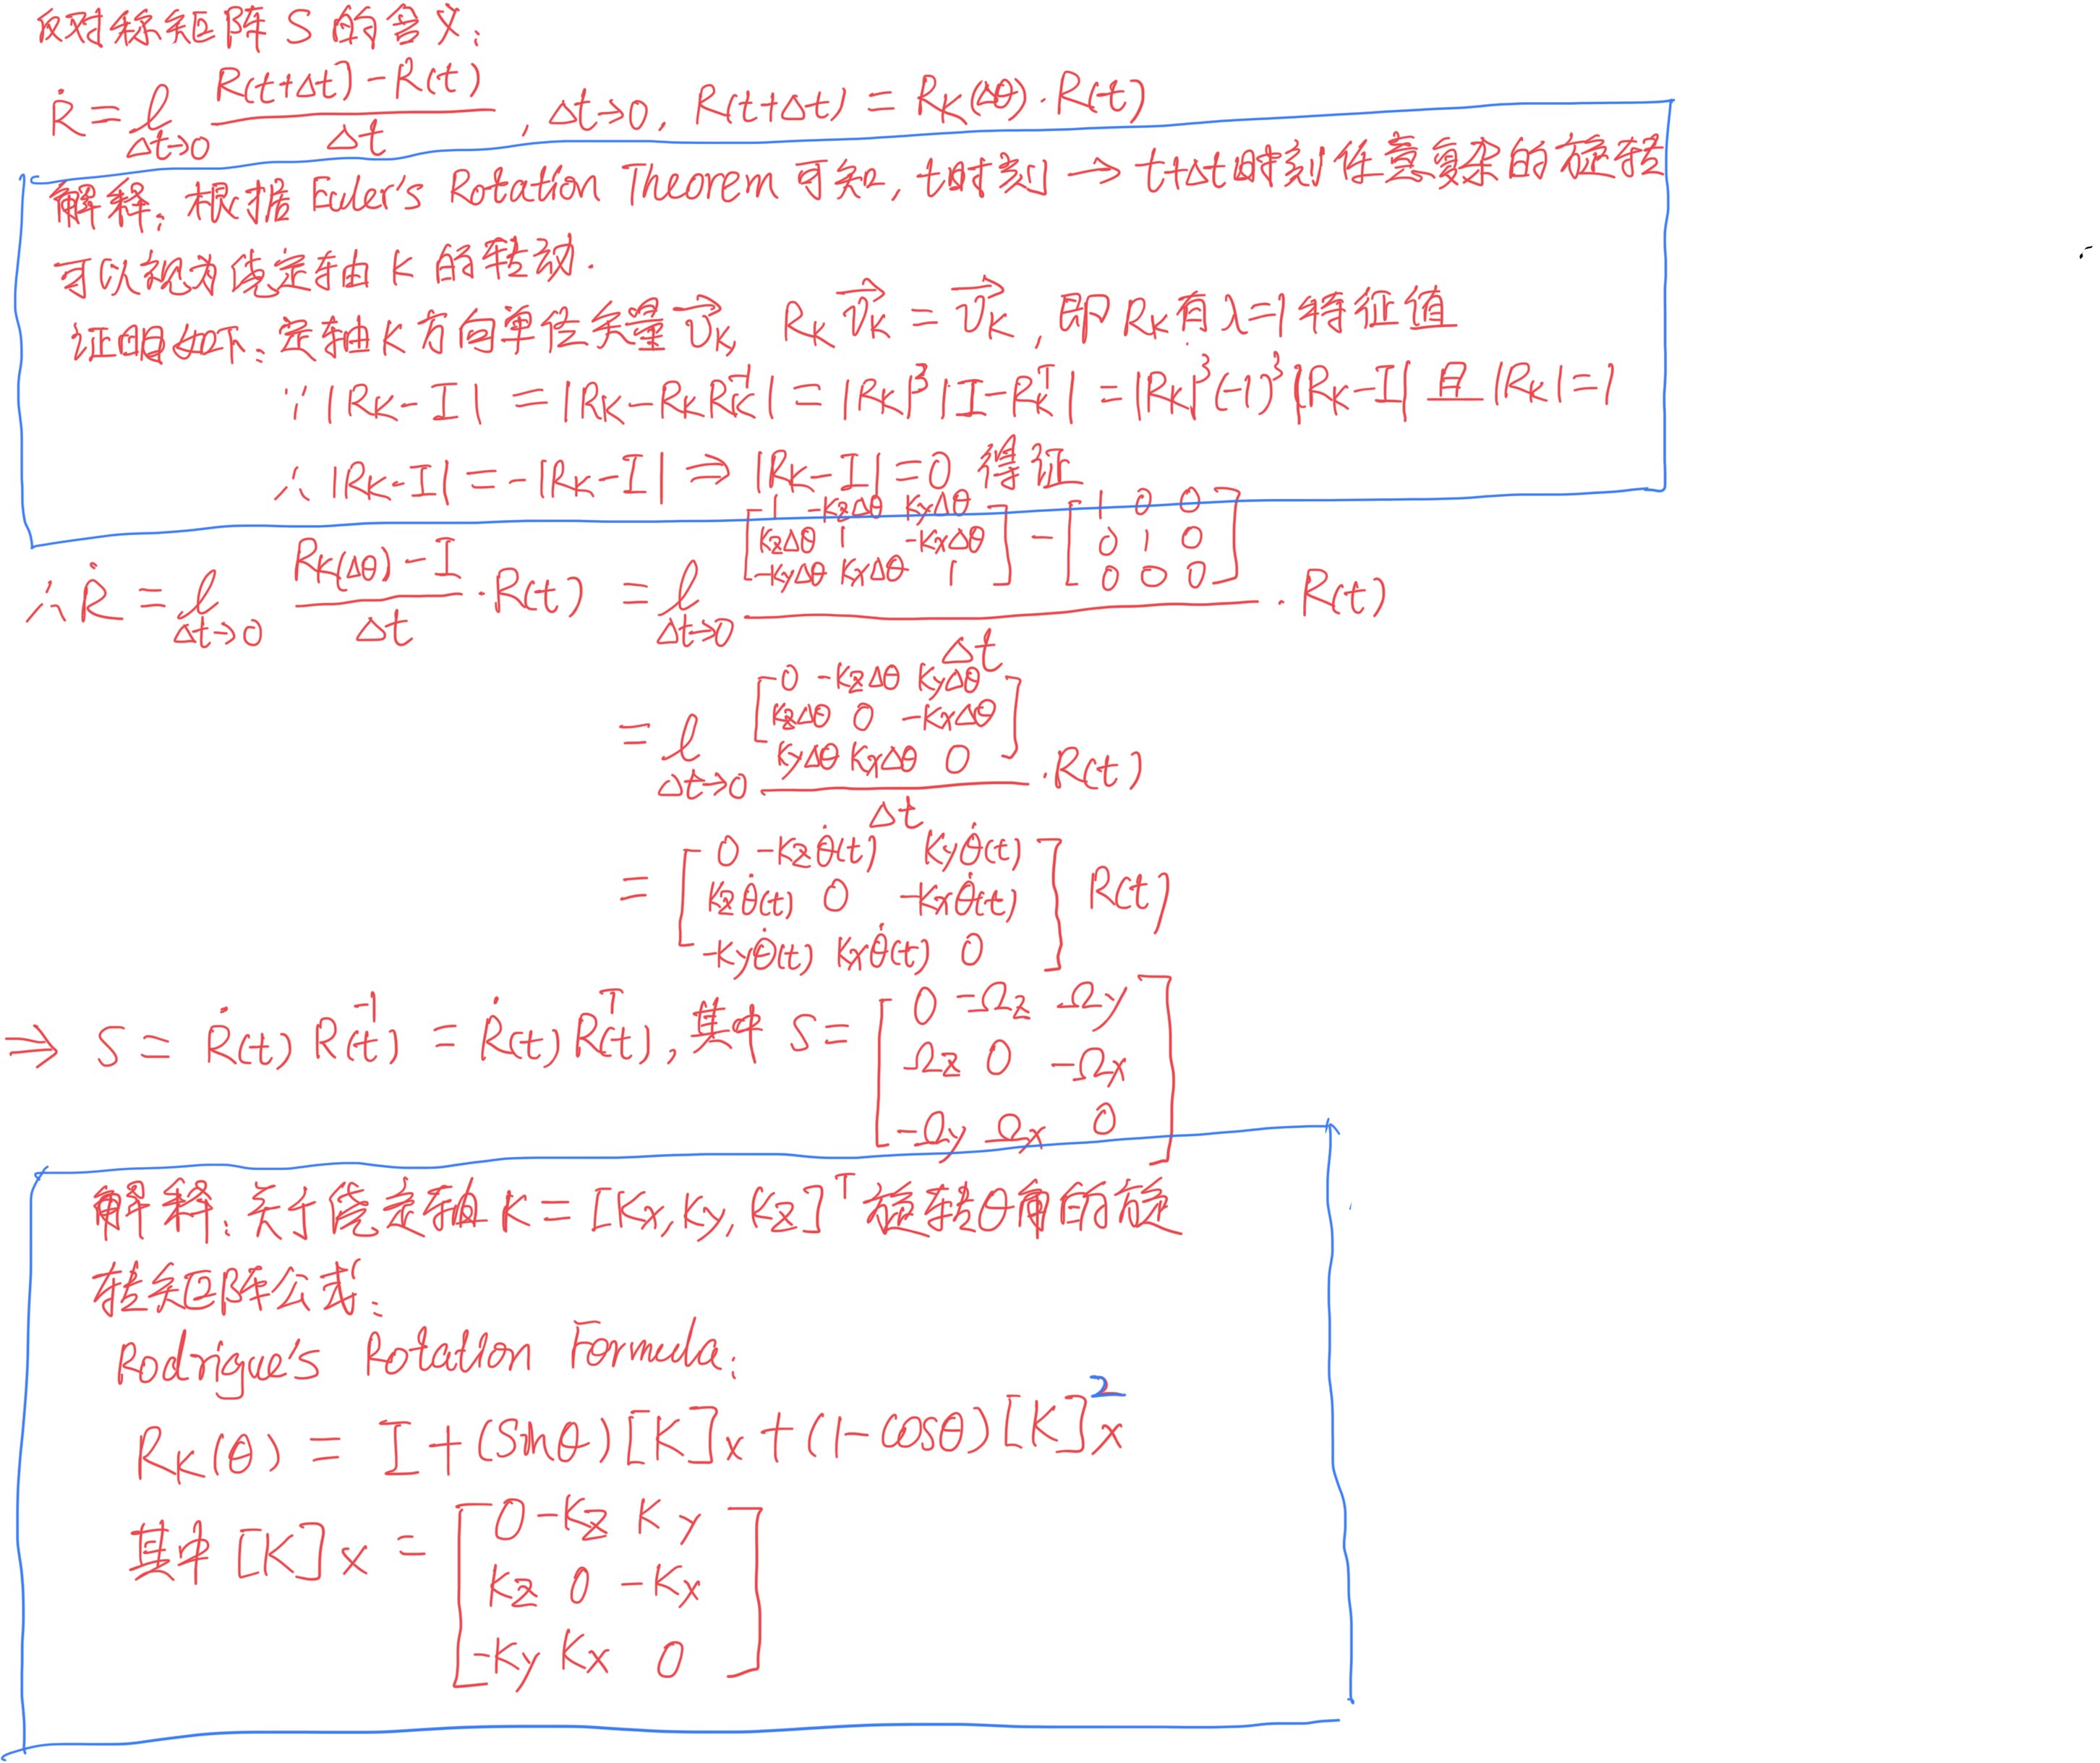 反对称矩阵 S 的含义:
Ṙ = ℓ_{Δt→0} (R(t+Δt) - R(t)) / Δt , Δt→0, R(t+Δt) = R_K(Δθ)·R(t)
解释: 根据 Euler's Rotation Theorem 可知, t时刻 → t+Δt时刻任意复杂的旋转
可以视为绕定轴 K 的转动.
证明如下: 定轴K方向单位矢量 v⃗_K, R_K v⃗_K = v⃗_K, 即 R_K 有 λ=1 特征值
∵ |R_K - I| = |R_K - R_K R_K^{-1}| = |R_K|^3 |I - R_K^T| = |R_K|^3 (-1)^3 |R_K - I| 且 |R_K| = 1
∴ |R_K - I| = -|R_K - I| ⇒ |R_K - I| = 0 得证
∴ Ṙ = ℓ_{Δt→0} (R_K(Δθ) - I) / Δt · R(t) = ℓ_{Δt→0} ([1 -KzΔθ KyΔθ; KzΔθ 1 -KxΔθ; -KyΔθ KxΔθ 1] - [1 0 0; 0 1 0; 0 0 0]) / Δt · R(t)
= ℓ_{Δt→0} [0 -KzΔθ KyΔθ; KzΔθ 0 -KxΔθ; KyΔθ KxΔθ 0] / Δt · R(t)
= [0 -Kzθ̇(t) Kyθ̇(t); Kzθ̇(t) 0 -Kxθ̇(t); -Kyθ̇(t) Kxθ̇(t) 0] R(t)
⇒ S = Ṙ(t) R^{-1}(t) = Ṙ(t) R^T(t), 其中 S = [0 -Ωz Ωy; Ωz 0 -Ωx; -Ωy Ωx 0]
解释: 关于绕定轴 K = [Kx, Ky, Kz]^T 旋转θ角的旋
转矩阵公式:
Rodrigue's Rotation Formula:
R_K(θ) = I + (sinθ)[K]_x + (1-cosθ)[K]_x^2
其中 [K]_x = [0 -Kz Ky; Kz 0 -Kx; -Ky Kx 0]